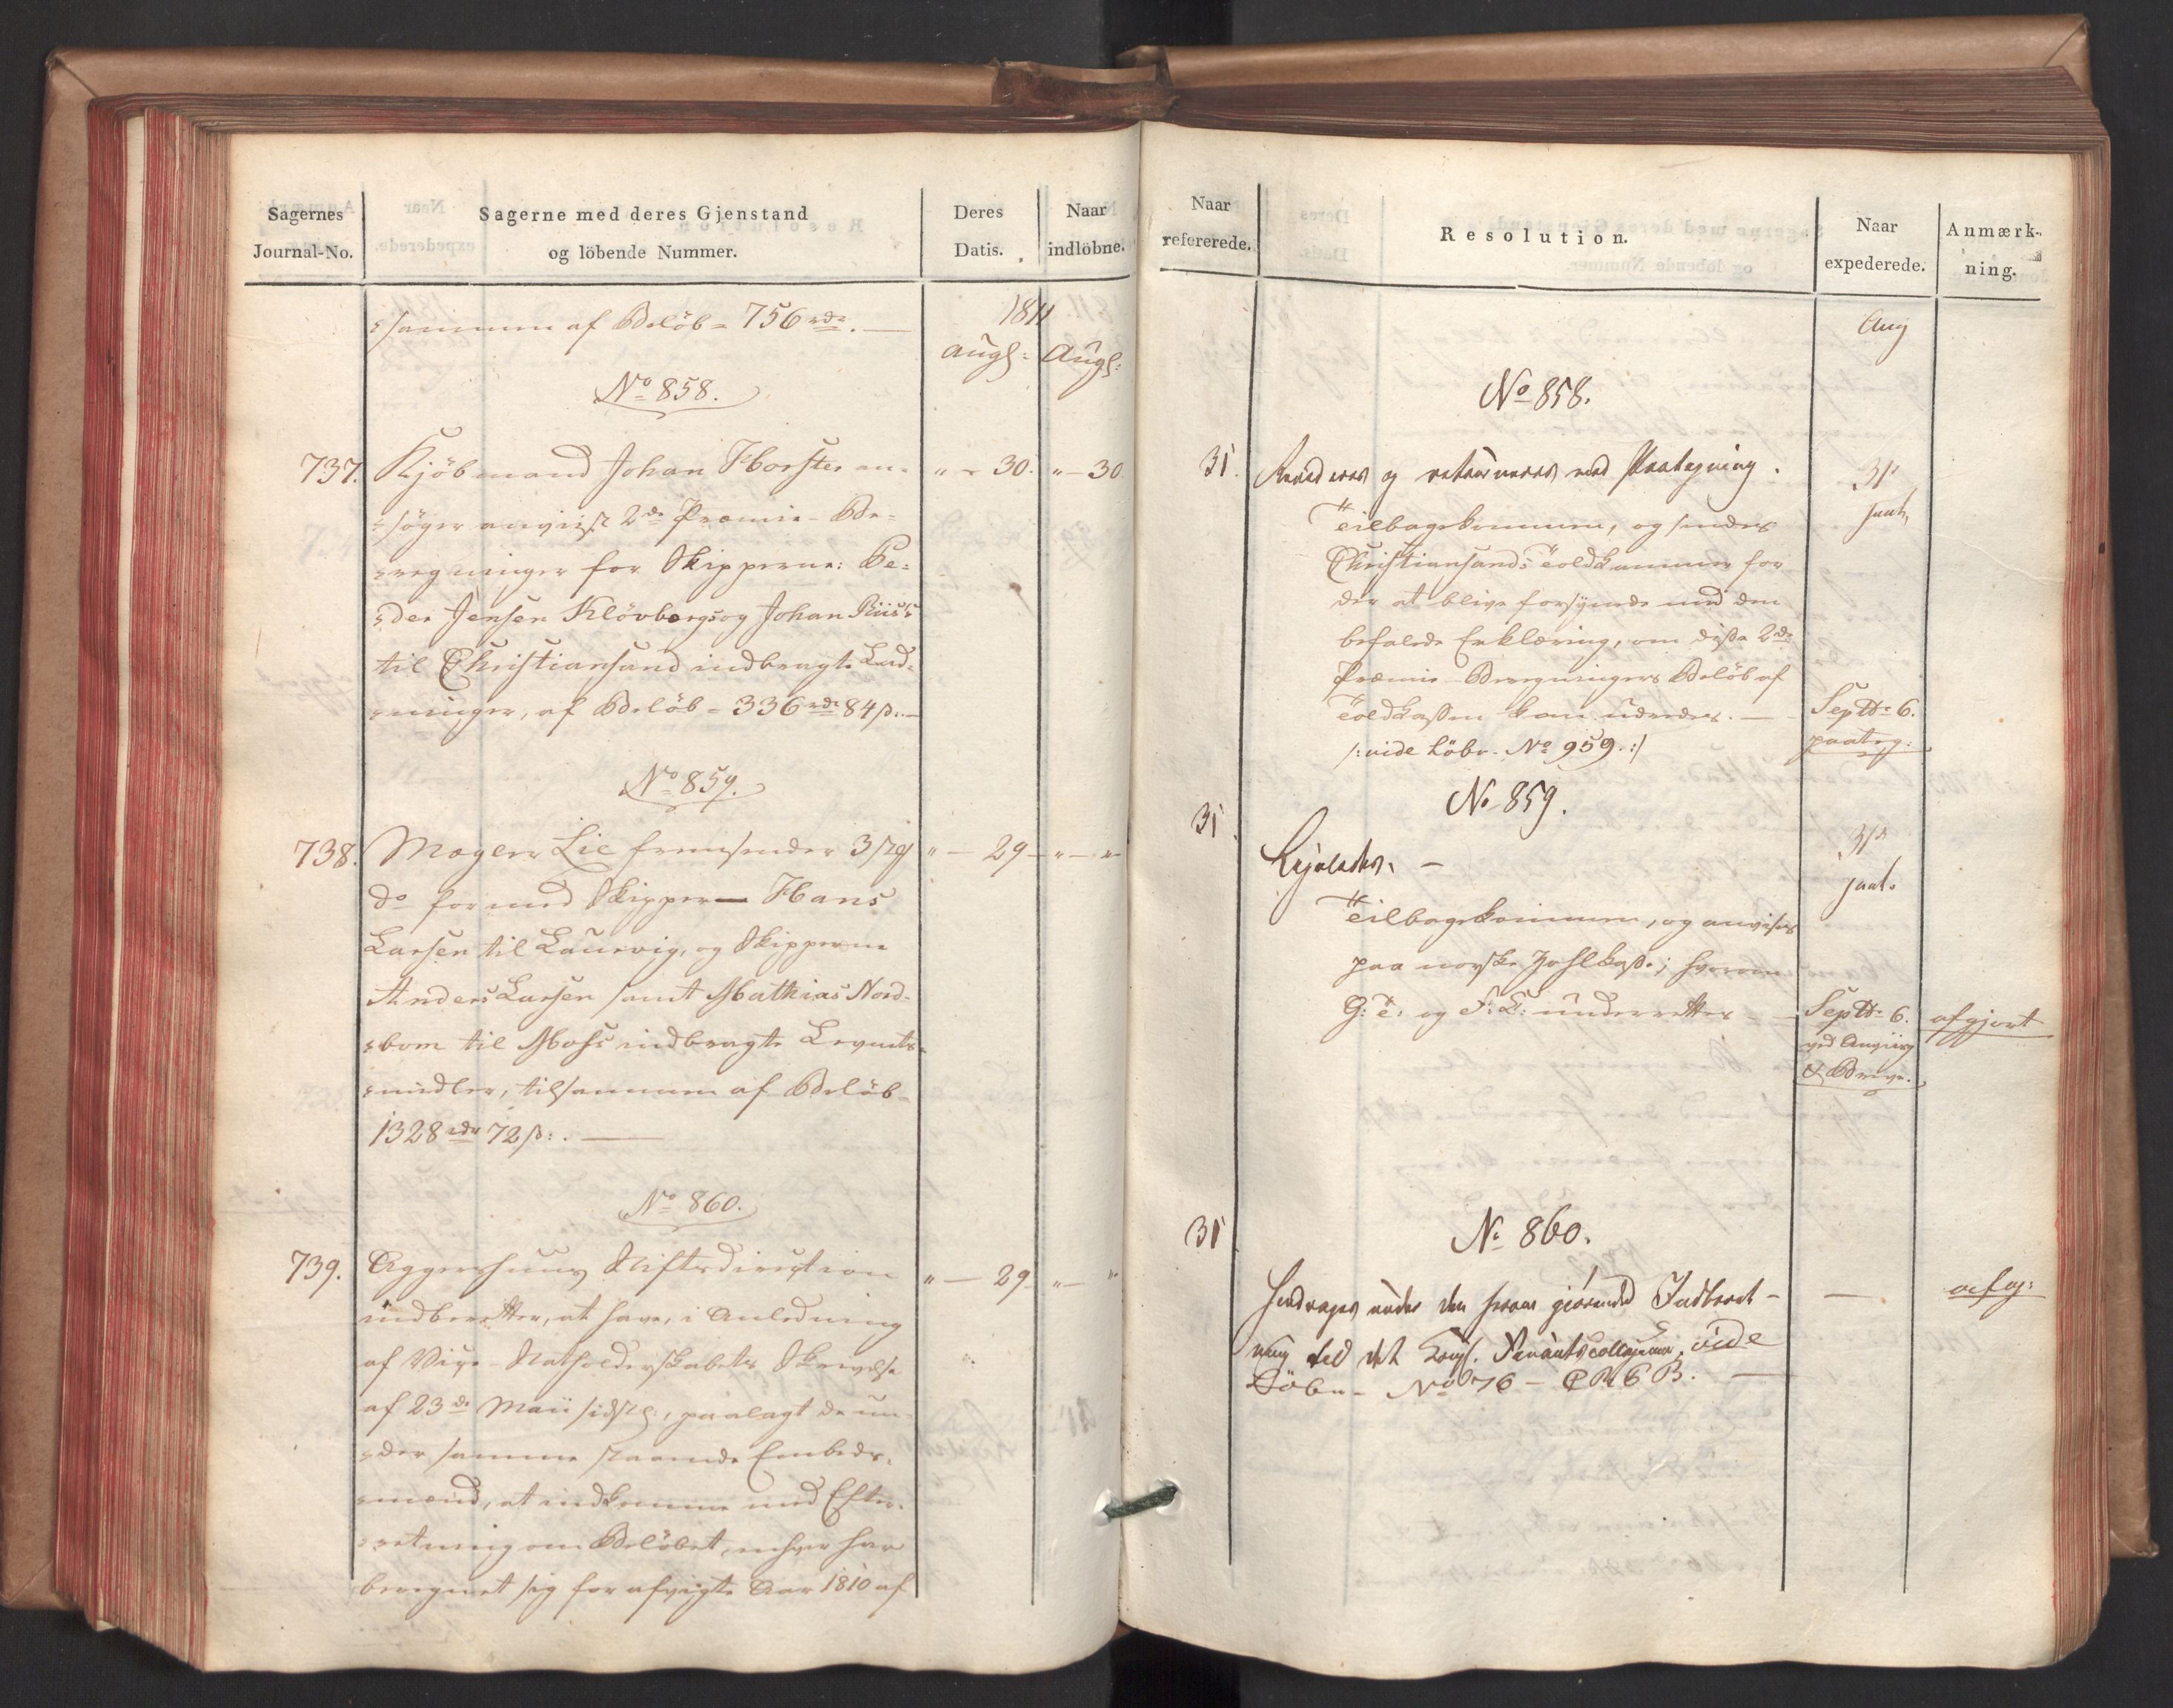 Sagernes
Journal-No.
Sagerne med deres Gjenstand
og löbende Nummer.
Deres
Datis.
Naar
indlöbne.
=sammen af Beløb = 756 rdr.
1811
Augs: Augs:
No 858.
737. Kjöbmand Johan Horster an=
=søger anviist 2de Præmie-Be=
=regninger for Skipperne: Pe=
=der Jensen Klövberg og Johan Riis's
til Christiansand indbragte Lad=
=ninger, af Beløb = 336 rdr 84 s.
" - 30. " - 30.
No 859.
738. Mægler Lie fremsender 3 stk
do for med Skipper Hans
Larsen til Laurvig, og Skipperne
Anders Larsen samt Mathias Nord=
=bom til Moss indbragte Levnets=
=midler, tilsammen af Beløb =
1328 rdr 72 s:
" - 29 - " - "
No 860.
739. Aggershuus Stiftsdirection
indberetter, at have, i Anledning
af Vice-Statholderskabets Skrivelse
af 23de Maii sidstl:, paalagt de un=
=der samme staaende Embeds=
=mænd, at indkomme med Efter=
=retning om Beløbet, enhver har
beregnet sig for afvigte Aar 1810 af
" - 29 - " - "
Naar
refererede.
Resolution.
Naar
expederede.
Anmærk-
ning.
Aug
No 858.
31. Revideres og retourneres med Paategning.
31
Tilbagekommen, og sendes
Christiansands Toldkammer for
der at blive forsynede med den
befalede Erklæring, om disse 2de
Præmie-Beregningers Beløb af
Toldkassen kan udredes.
/: vide Löbe- No 959. :/
Septbr 6.
paateg:
No 859.
31
Ligeledes.
31
Tilbagekommen, og anvises
paa norske Zahlkasse; hvorom
G: T: og F: L: underrettes
Septbr 6.
ved Anviisg
& Breve.
afgjort
No 860.
31
Henlægges under den herom giörende Indberet-
ning til det Kongl. Finantscollegium, vide
Löbe- No 76 - P R 6 B.
afgj: